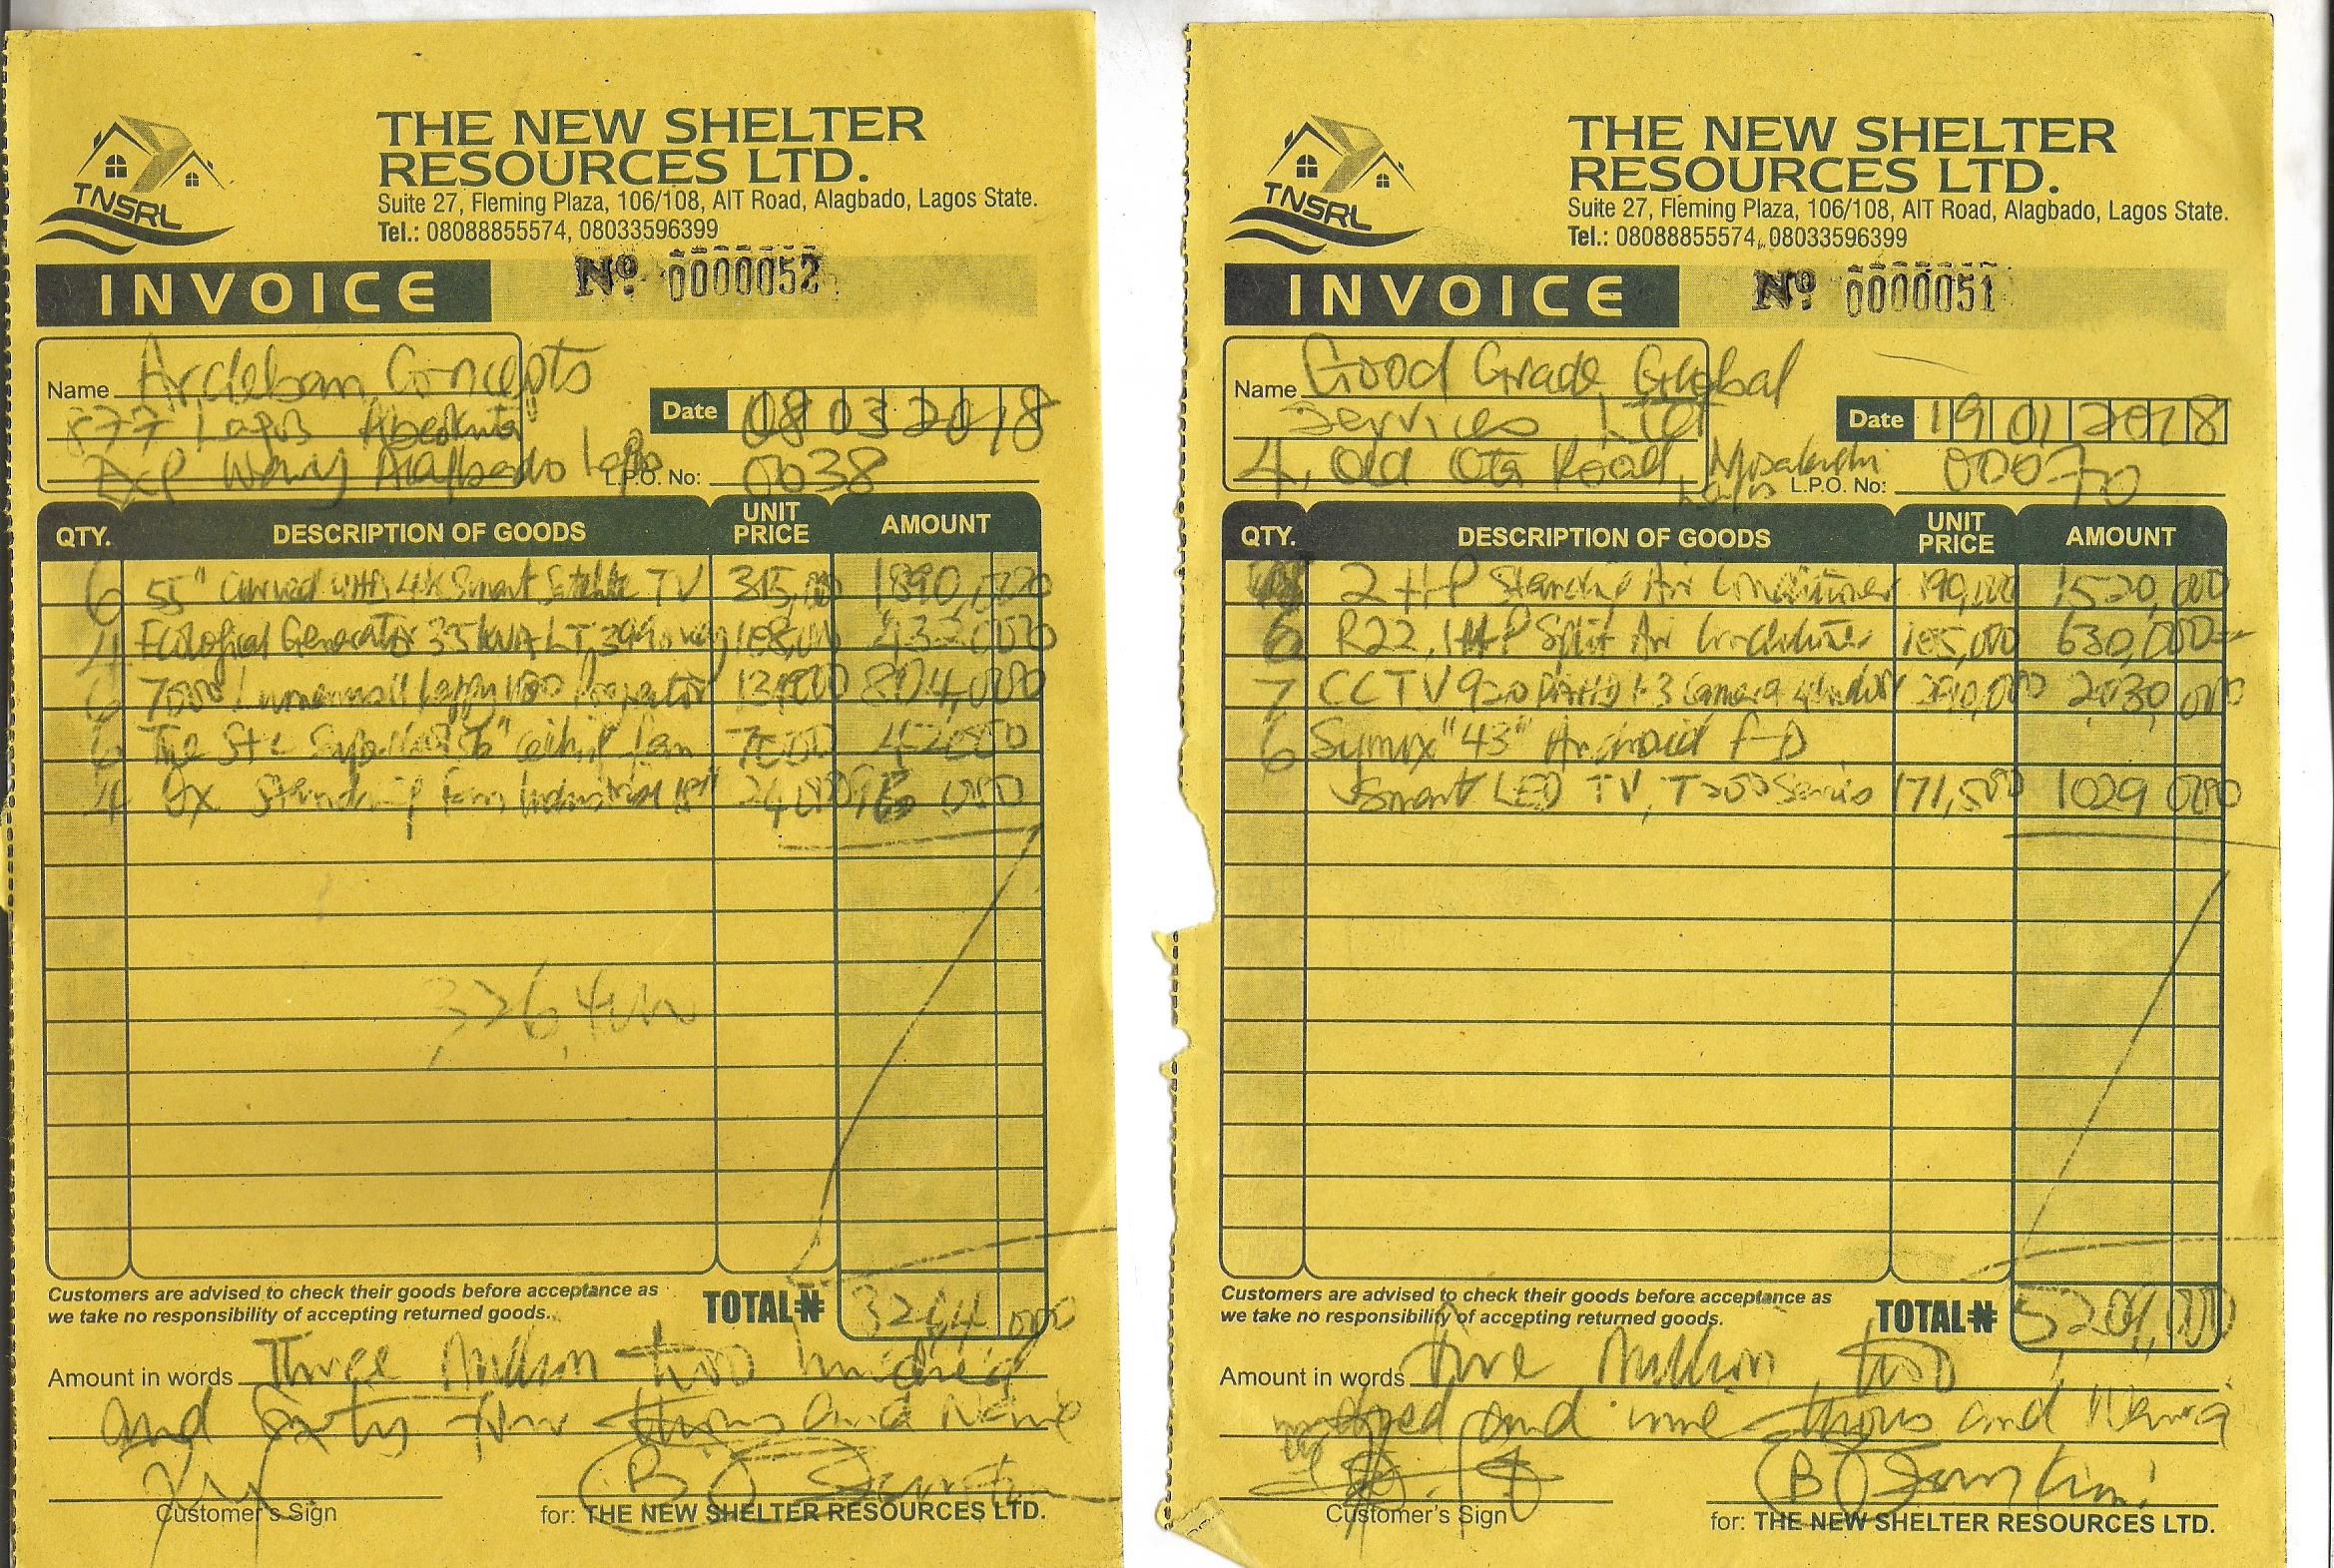 TNSRL
THE NEW SHELTER
RESOURCES LTD.
Suite 27, Fleming Plaza, 106/108, AIT Road, Alagbado, Lagos State.
Tel.: 08088855574, 08033596399
INVOICE
Nº 0000052
Name Ardeban Concepts
877 Lagos Abeokuta
Exp Way Alagbado Lagos
Date 08 03 2018
L.P.O. No: 0038
QTY. DESCRIPTION OF GOODS UNIT PRICE AMOUNT
6 55" Curved UHD 4K Smart Satelite TV 315,000 1890,000
4 Ecological Generator 3.5KVA LT 108,000 432,000
6 7000 Projector 134,000 804,000
6 ceiling fan 7000 42000
4 Ox Standing Fan Industrial 24,000 96,000
TOTAL ₦ 3264,000
Customers are advised to check their goods before acceptance as
we take no responsibility of accepting returned goods.
Amount in words Three Million two hundred
and Sixty four thousand Naira
Customer's Sign
for: THE NEW SHELTER RESOURCES LTD.
TNSRL
THE NEW SHELTER
RESOURCES LTD.
Suite 27, Fleming Plaza, 106/108, AIT Road, Alagbado, Lagos State.
Tel.: 08088855574, 08033596399
INVOICE
Nº 0000051
Name Good Grade Global
Services Ltd
4, Old Ota Road, Lagos
Date 19 01 2018
L.P.O. No: 00070
QTY. DESCRIPTION OF GOODS UNIT PRICE AMOUNT
2 HP Standing Air Conditioner 190,000 1520,000
6 R22, 1HP Split Air Conditioner 105,000 630,000
7 CCTV 920 Camera 290,000 2030,000
6 Symix "43" Android F-D
Smart LED TV, T200 Series 171,500 1029,000
TOTAL ₦ 5209,000
Customers are advised to check their goods before acceptance as
we take no responsibility of accepting returned goods.
Amount in words five Million, two
hundred and nine thousand Naira
Customer's Sign
for: THE NEW SHELTER RESOURCES LTD.